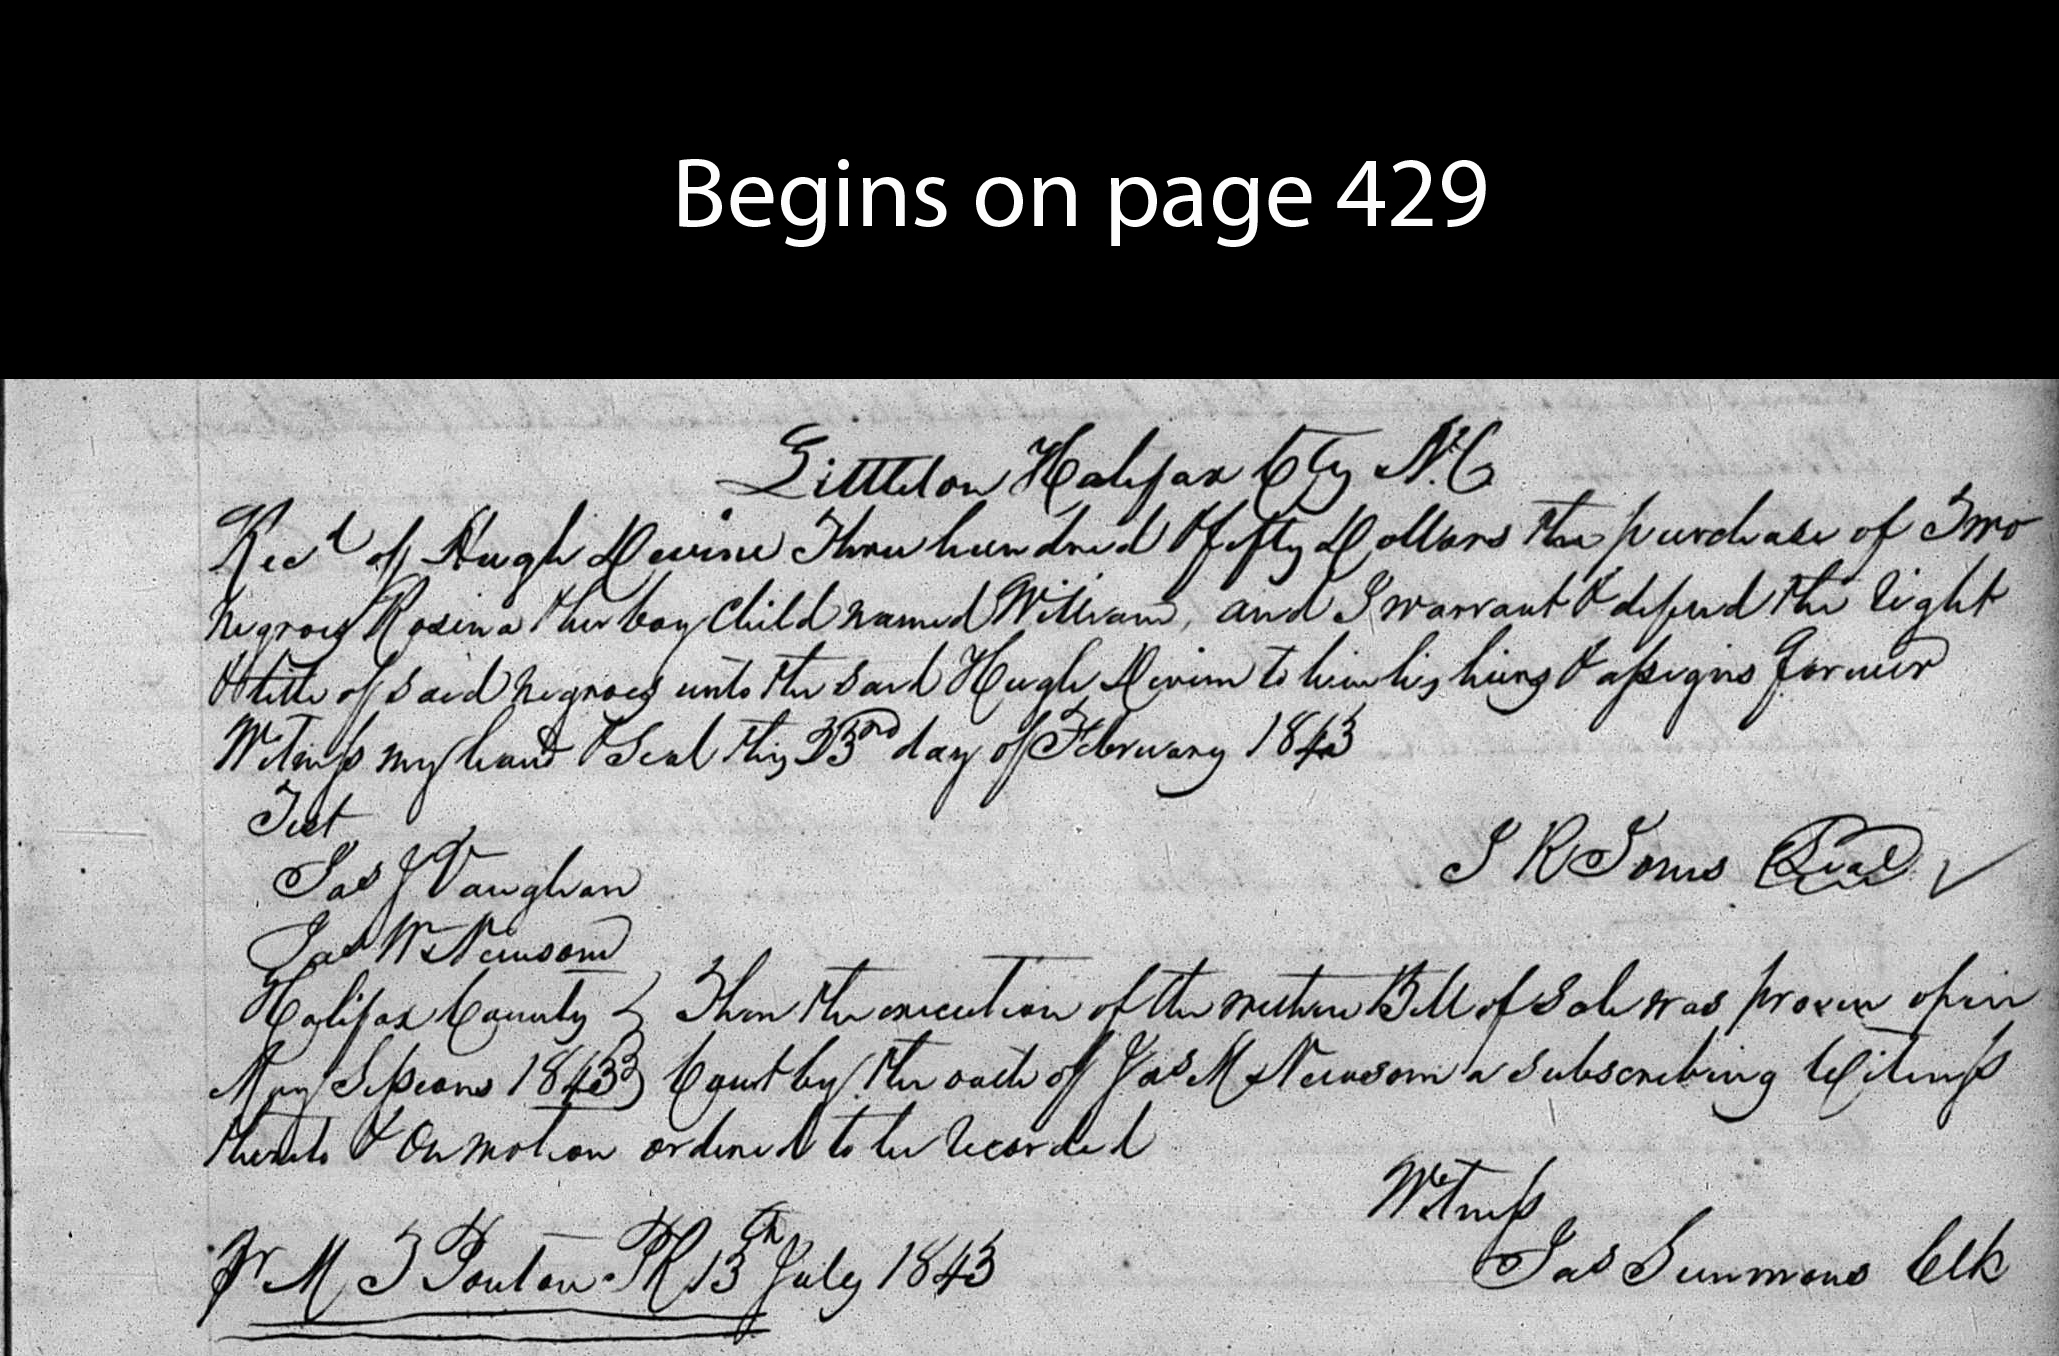 Begins on page 429
Littleton Halifax Cty N.C
Recd of Hugh Devine Three hundred & fifty Dollars the purchase of Two
negroes Rosina & her boy Child named William, and I warrant & defend the right
& title of said negroes unto the said Hugh Devine to him his heirs & assigns forever
Witness my hand & Seal this 23rd day of February 1843
Test
Jas J Vaughan
J R Sims Seal
Jas W Newsom
Halifax County } Then the execution of the within Bill of Sale was proven open
May Sessions 1843 } Court by the oath of Jas M Newsom a subscribing Witness
thereto & On motion ordered to be recorded
Witness
pr M T Ponton PR 13th July 1843
Jas Simmons Clk